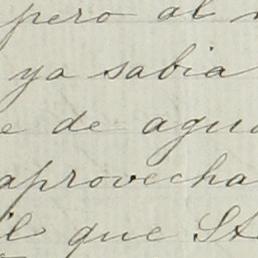 pero al
ya sabia
e de agua
aprovecha
il que St